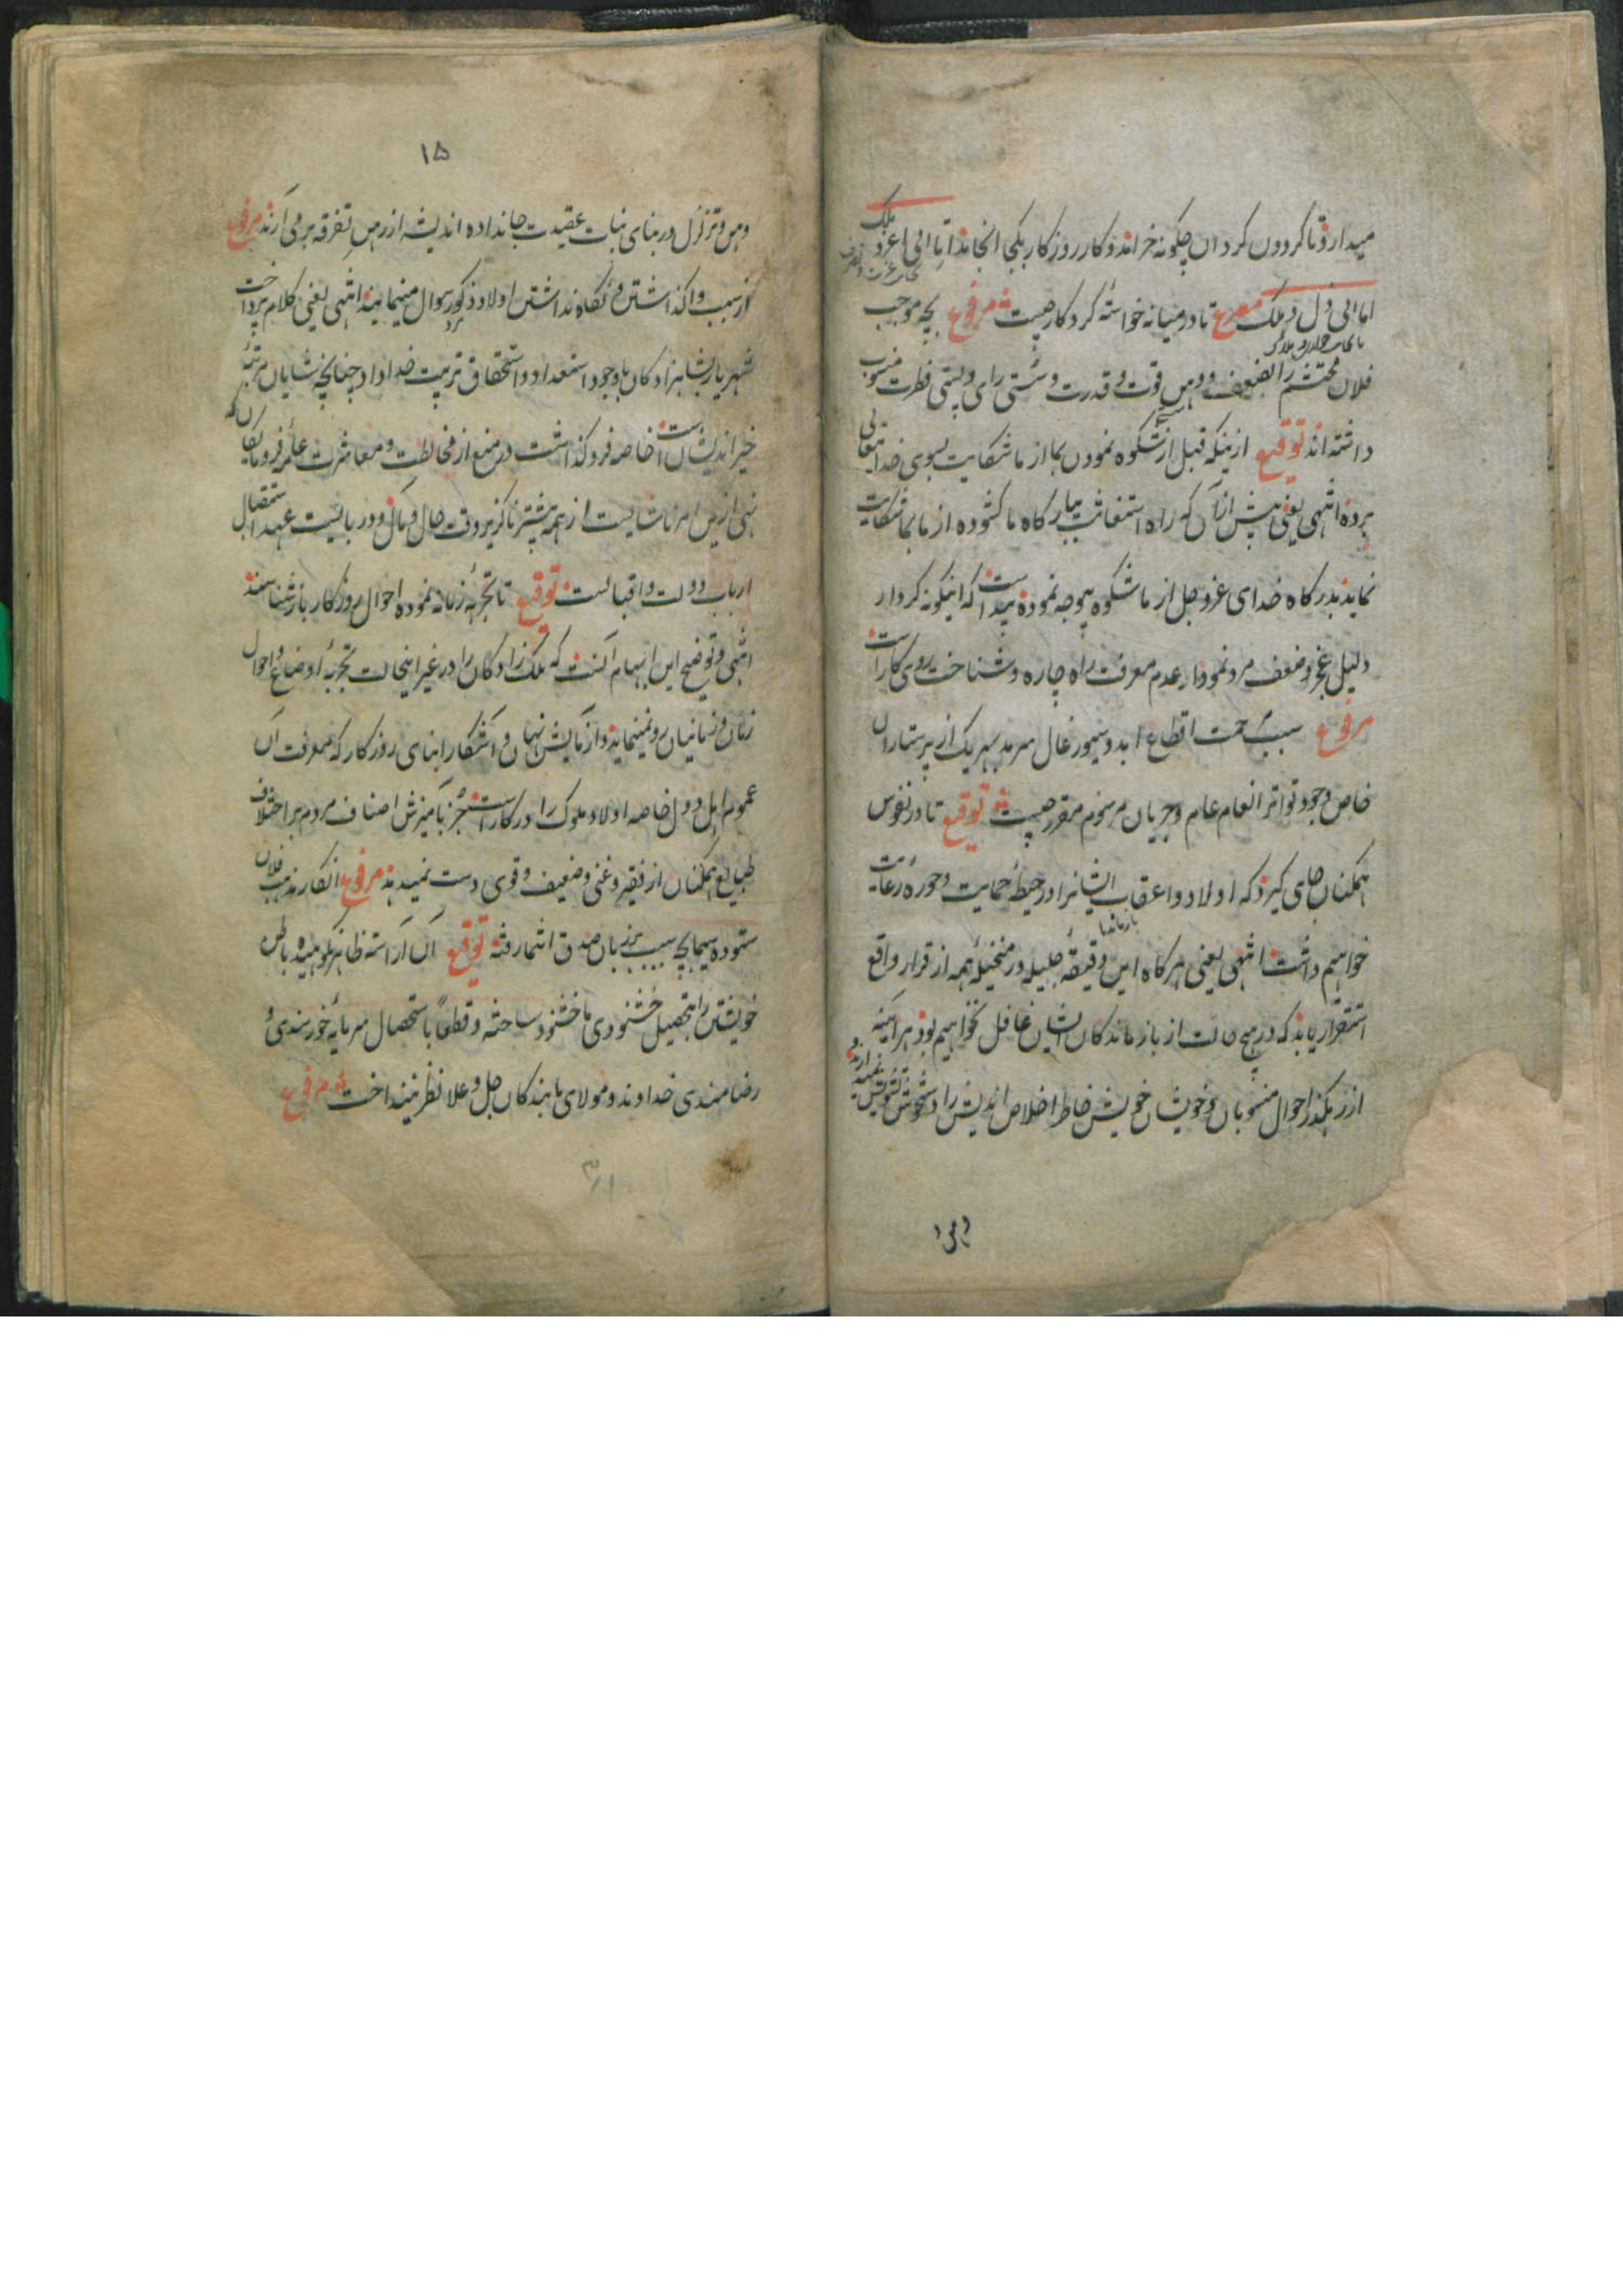 میدارد تا کردون کردان چکونه خراند و کار روزکار بکجا انجاند اما الی عز و ملک
اما الی ذل و هلک مصرع تا در میانه خواستهٔ کردکار چیست مرفوع بچه موجب
فلان محتشم را بضعف و وهن قوت و قدرت و سستی رای و پستی فطرت منسوب
داشته‌اند توقیع ازینکه قبل از شکوه نمودن بما از ما شکایت بسوی خدا یتعالی
برده انتهی یعنی پیش از آن که راه استغاثت ببارکاه ما کشوده از ما بما شکایت
نماید بدرکاه خدای عز و جل از ما شکوه بیوجه نموده پیداست که اینکونه کردار
دلیل عجز و ضعف مرد و نمودار عدم معرفت راه چاره و شناخت روی کار است
مرفوع سبب مرحمت اقطاع ابد و سیورغال سرمد بهر یک از پرستاران
خاص با وجود تواتر انعام عام و جریان مرسوم مقرر چیست توقیع تا در نفوس
همکنان جای کیرد که اولاد و اعقاب ایشانرا در حیطهٔ حمایت و حوزهٔ رعایت
خواهیم داشت انتهی یعنی هرکاه این دقیقهٔ جلیله در متخیلهٔ همه از قرار واقع
استقرار یابد که در هیچ حالت از بازماندکان ایشان غافل نخواهیم بود هر آینه
از رهکذر احوال منسوبان و خویشان خویش خاطر اخلاص اندیش را دستخوش تشویش نمیدارند و
۱۵
وهن و تزلزل در بنای ثبات عقیدت جا نداده اندیشه از رهن تفرقه بر می‌آرند مرفوع
از سبب وا کذاشتن و نکاه نداشتن اولاد ذکور سوال مینمایند انتهی یعنی کلام پرداخت
شهریار بشاهزادکان با وجود استعداد و استحقاق تربیت خداداد چنانچه شایان مرتبهٔ
خیراندیشان است خاصه فروکذاشت در منع از مخالطت و معاشرت عامه فرومایکان که
نهی ازین امر ناشایست از همه بیشتر ناکزیر وقت حال و مآل و دربایست عهد استقبال
ارباب دولت و اقبالست توقیع تا تجربهٔ زمانه نموده احوال روزکار باز شناسند
انتهی و توضیح این ابهام آنست که ملک زادکان را در غیر اینحالت تجربهٔ اوضاع و احوال
زمان و زمانیان رو نمینماید و آزمایش نهان و آشکار ابنای روزکار که معرفت آن
عموم اهل دول خاصه اولاد ملوک را در کار است جز بآمیزش اصناف مردم بر اختلاف
طبایع همکنان از فقیر و غنی و ضعیف و قوی دست نمیدهد مرفوع انکار مذهب فلان
ستوده سیما بچه سبب بر زبان صدق انتما رفته توقیع آن آراسته ظاهر نکوهیده باطن
خویشتن را بتحصیل خشنودی ما خشنود ساخته و قطعا باستحصال سرمایهٔ خورسندی و
رضامندی خداوند و مولای ما بندکان جل و علا نظر نینداخت مرفوع